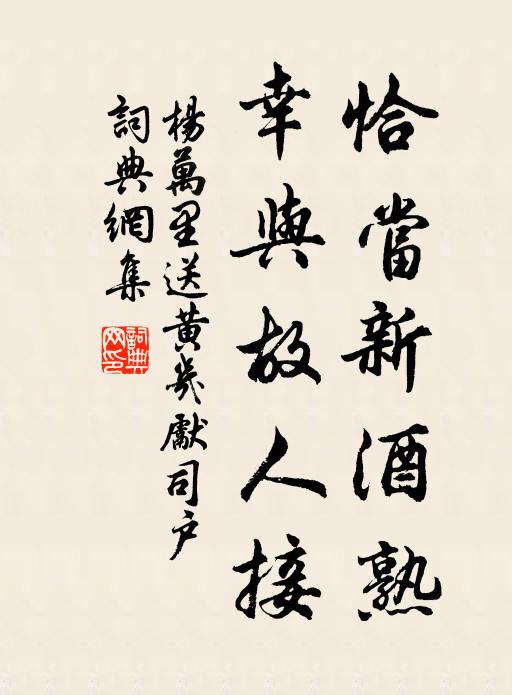 恰當新酒熟
幸與故人接
楊萬里送黄岑獻司户
詞典網集
詞典网印